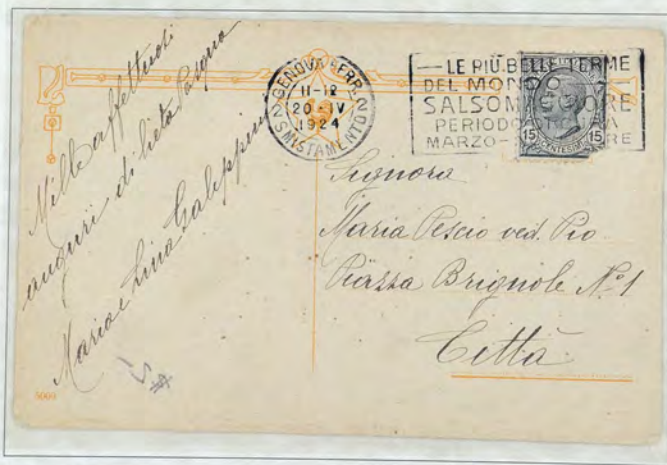 Mille affettuosi
auguri di lieta Pasqua
Maria e Lina Galeppini
GENOVA FERR.
11-12
20 · IV
1924
2 SMISTAMENTO 2
— LE PIÙ BELLE TERME
DEL MONDO
SALSOMAGGIORE
PERIODO
MARZO-
15 CENTESIMI 15
Signora
Maria Pescio ved. Pio
Piazza Brignole N.º 1
Città
5009